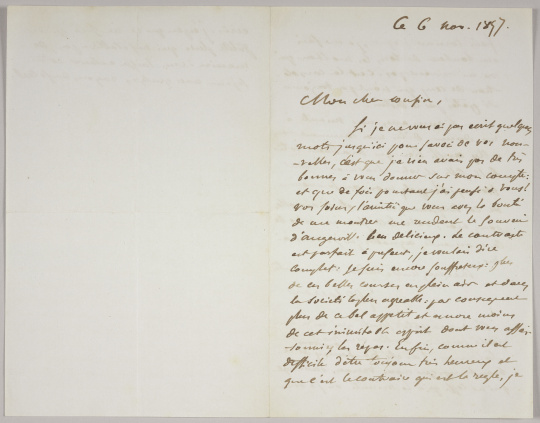 Ce 6 nov. 1857.
Mon cher cousin,
Si je ne vous ai pas écrit quelques
mots jusqu'ici pour savoir de vos nou-
-velles, c'est que je n'en avais pas de très
bonnes à vous donner sur mon compte:
et que de fois pourtant j'ai pensé à vous!
vos soins, l'amitié que vous avez la bonté
de me montrer me rendent le souvenir
d'Augerville bien délicieux. Le contraste
est parfait à présent, je voulais dire
complet: je suis encore souffreteux: plus
de ces belles courses en plein air et dans
la société la plus agréable: par conséquent
plus de ce bel appétit et encore moins
de cet inimitable esprit dont vous assai-
-sonniez les repas. Enfin, comme il est
difficile d'être toujours très heureux et
que c'est le contraire qui est la règle, je